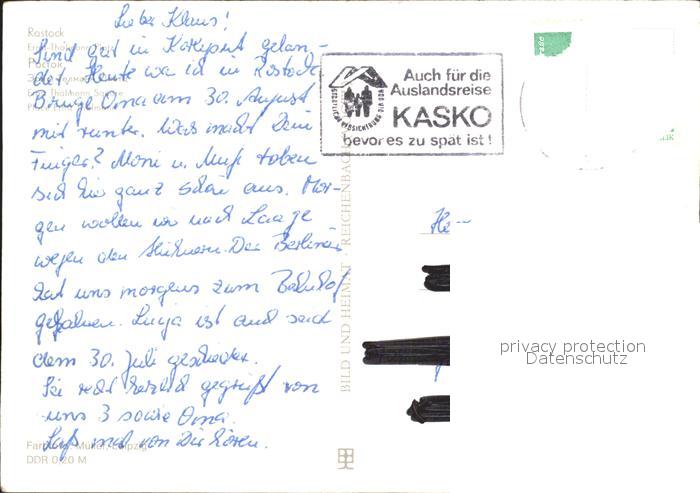 Lieber Klaus!
Sind gut in gelan-
det. Heute war ich in Rostock
Bringe Oma am 30. August
mit runter. Was macht Dein
Finger? Moni u. toben
sich hier ganz schön aus. Mor-
gen wollen wir nach Laage
wegen den Der Berliner
hat uns morgens zum Bahnhof
gefahren. ist auch seit
dem 30. Juli geschieden.
Sei recht herzlich gegrüßt von
uns 3 sowie Oma.
Laß mal von Dir hören.
Rostock
Ernst-Thälmann-Platz
Росток
DDR 0,20 M
BILD UND HEIMAT · REICHENBACH
Auch für die
Auslandsreise
KASKO
bevor es zu spät ist!
STAATLICHE VERSICHERUNG DER DDR
privacy protection
Datenschutz